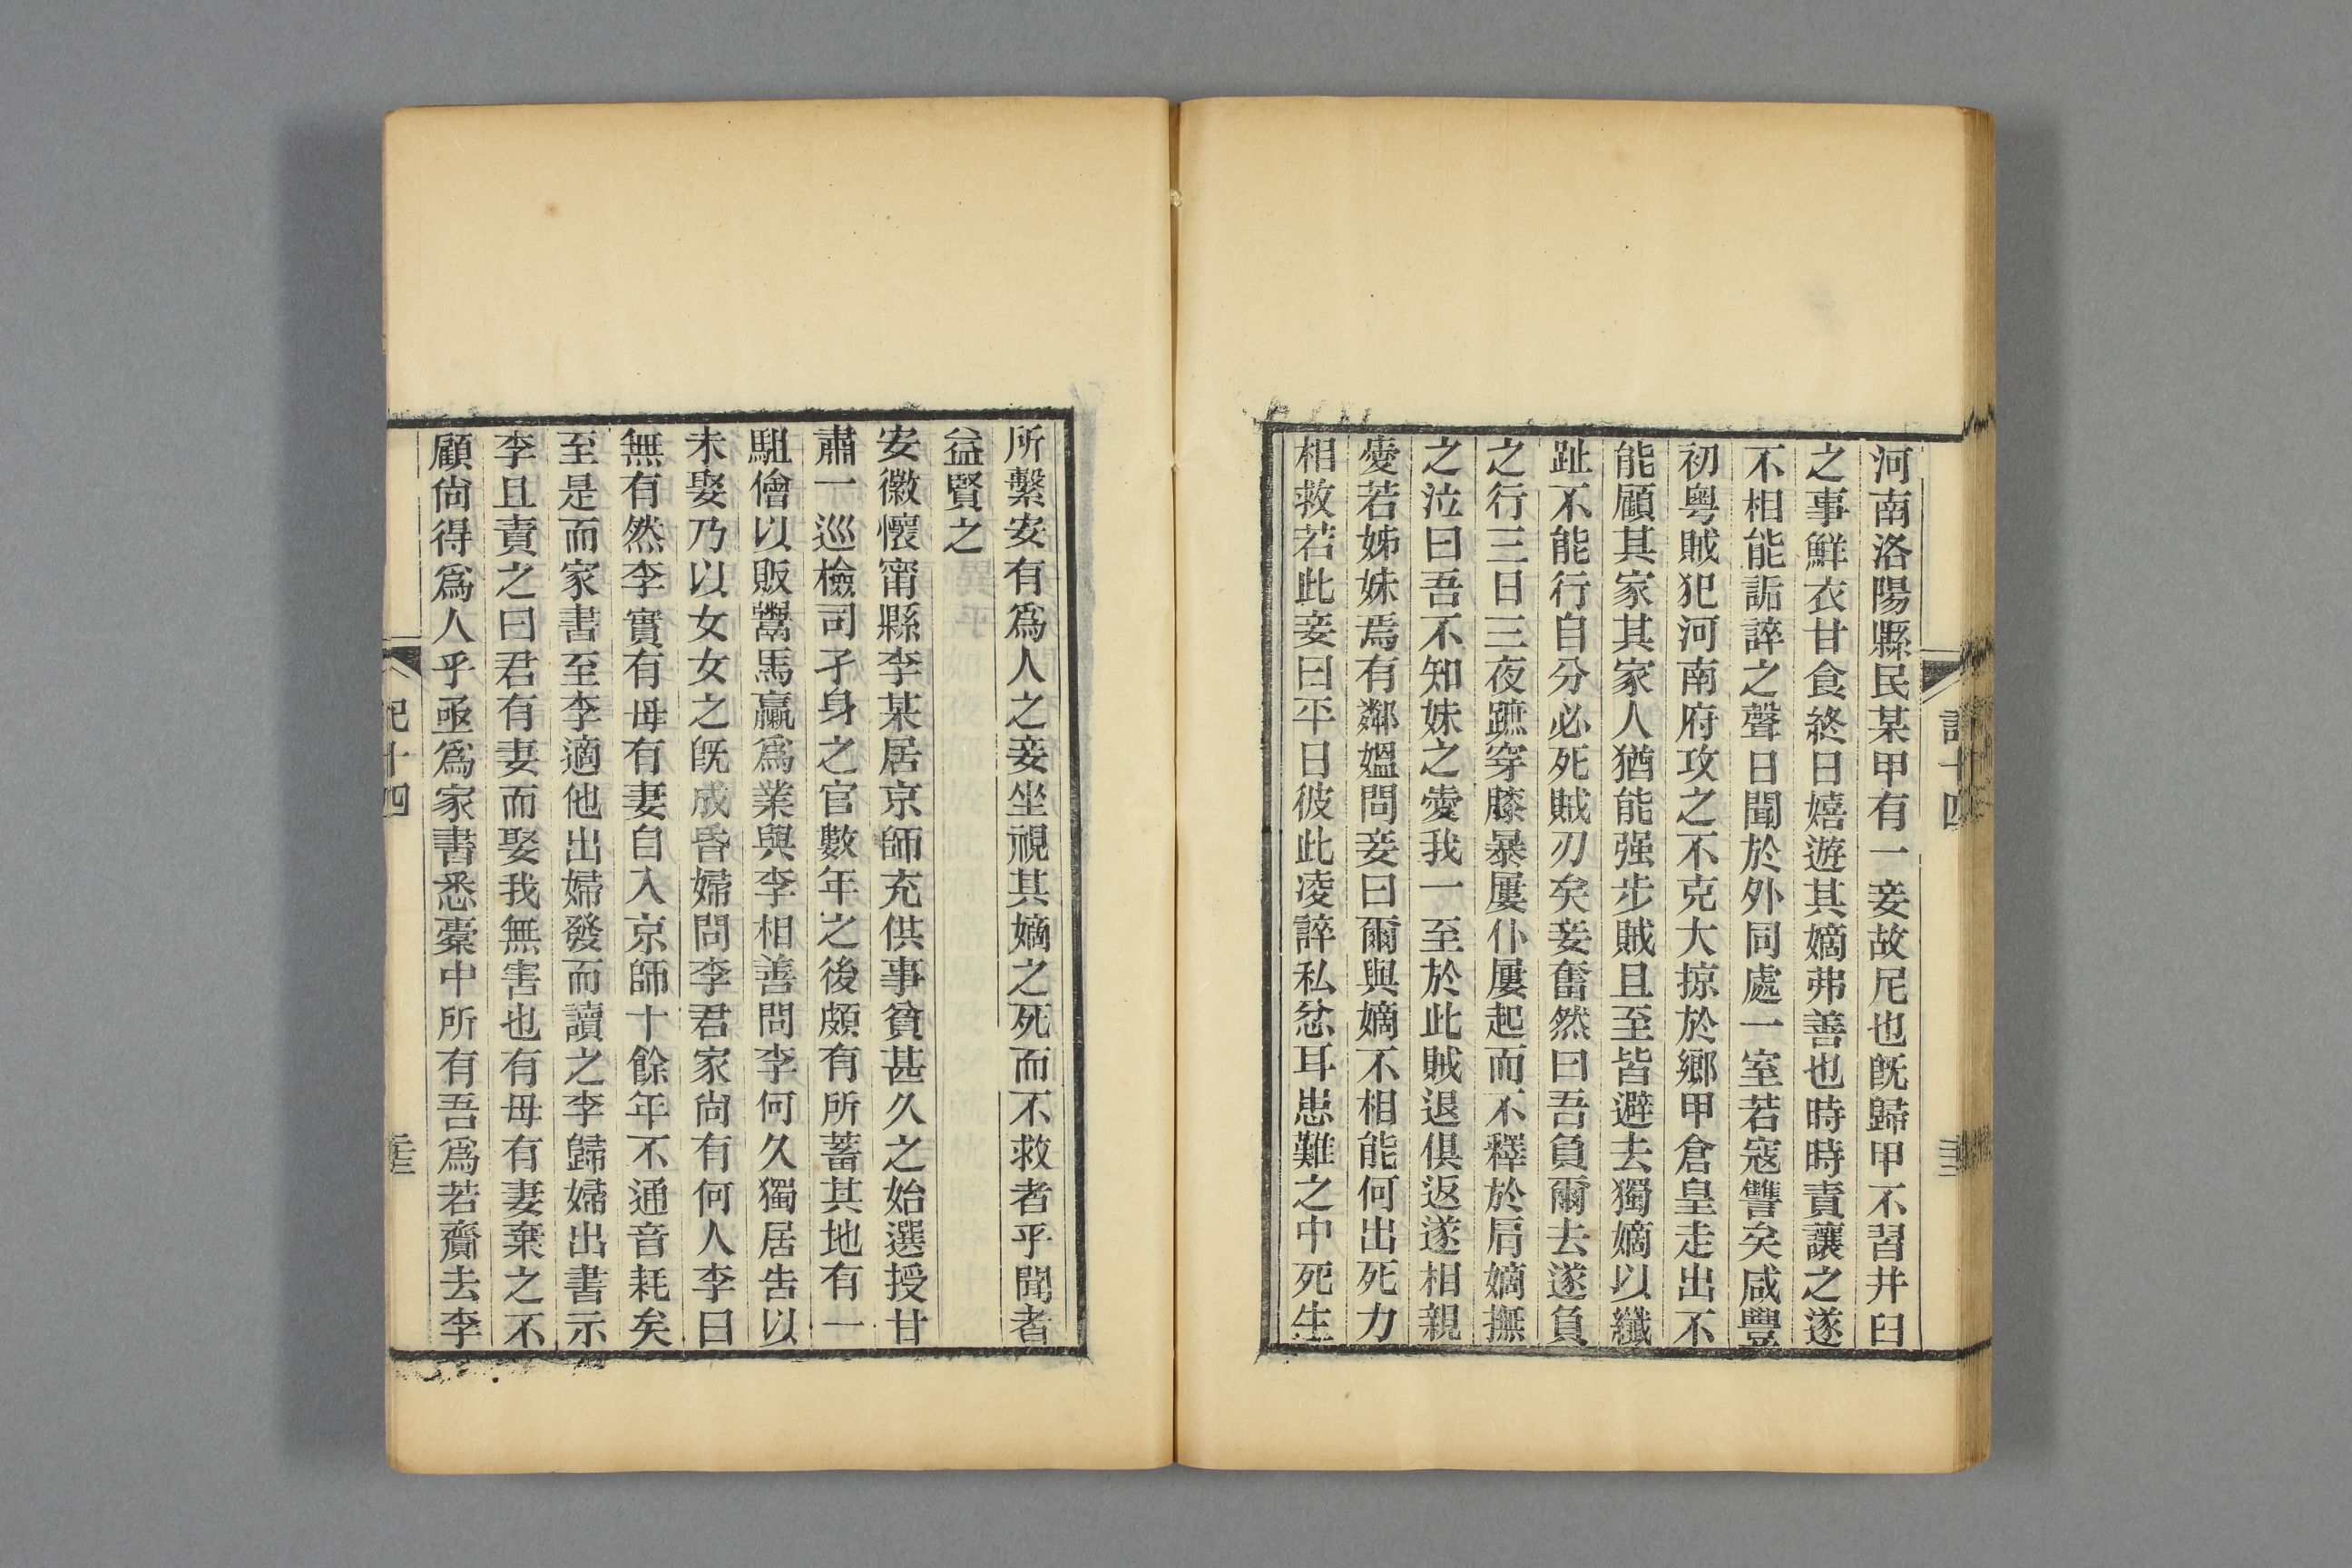 河南洛陽縣民某甲有一妾故尼也旣歸甲不習井臼
之事鮮衣甘食終日嬉遊其嫡弗善也時時責讓之遂
不相能詬誶之聲日聞於外同處一室若寇讐矣咸豐
初粤賊犯河南府攻之不克大掠於鄉甲倉皇走出不
能顧其家其家人猶能强步賊且至皆避去獨嫡以纖
趾不能行自分必死賊刃矣妾奮然曰吾負爾去遂負
之行三日三夜蹠穿膝暴屢仆屢起而不釋於肩嫡撫
之泣曰吾不知妹之愛我一至於此賊退俱返遂相親
愛若姊妹焉有鄰媼問妾曰爾與嫡不相能何出死力
相救若此妾曰平日彼此凌誶私忿耳患難之中死生
所繫安有爲人之妾坐視其嫡之死而不救者乎聞者
益賢之
安徽懷甯縣李某居京師充供事貧甚久之始選授甘
肅一巡檢司孑身之官數年之後頗有所蓄其地有一
駔儈以販鬻馬驘爲業與李相善問李何久獨居告以
未娶乃以女女之旣成昏婦問李君家尙有何人李曰
無有然李實有母有妻自入京師十餘年不通音耗矣
至是而家書至李適他出婦發而讀之李歸婦出書示
李且責之曰君有妻而娶我無害也有母有妻棄之不
顧尙得爲人乎亟爲家書悉橐中所有吾爲若齎去李